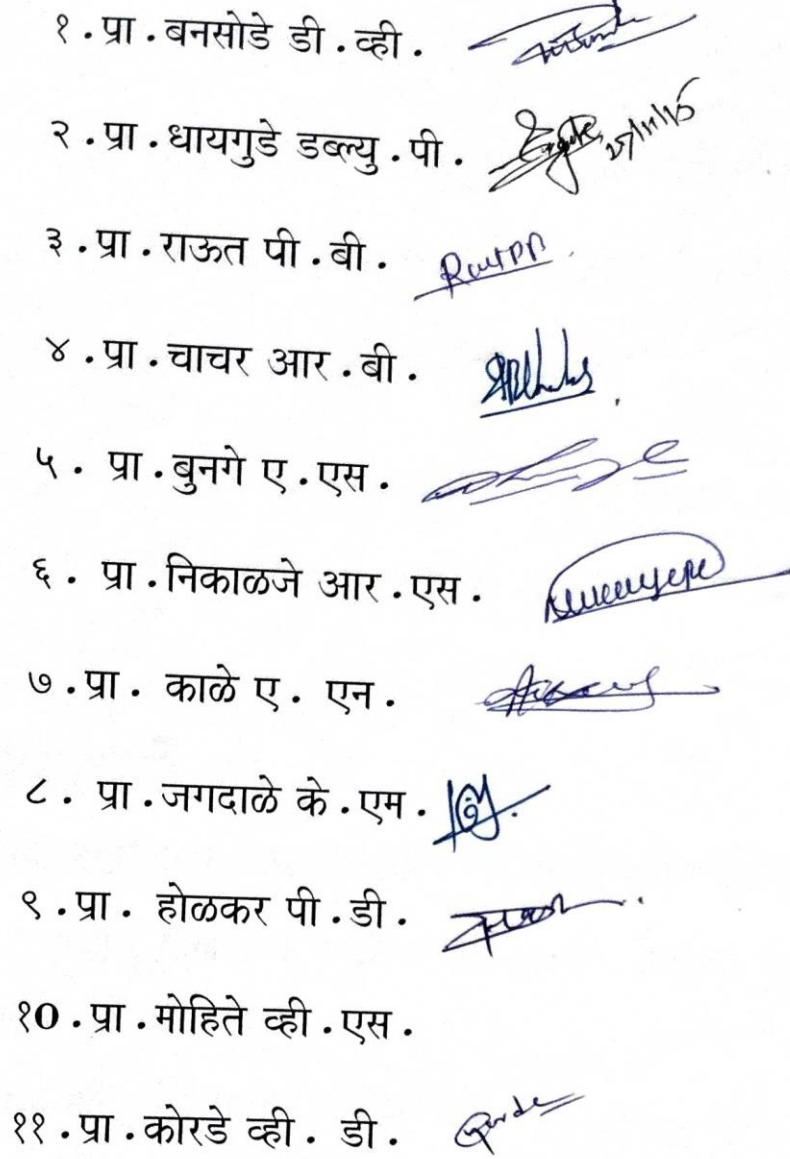 १.प्रा.बनसोडे डी.व्ही.
२.प्रा.धायगुडे डब्ल्यु.पी.
३.प्रा.राऊत पी.बी. RautPB
४.प्रा.चाचर आर.बी.
५. प्रा.बुनगे ए.एस.
६. प्रा.निकाळजे आर.एस.
७.प्रा. काळे ए. एन.
८. प्रा.जगदाळे के.एम.
९.प्रा. होळकर पी.डी.
१0.प्रा.मोहिते व्ही.एस.
११.प्रा.कोरडे व्ही. डी.